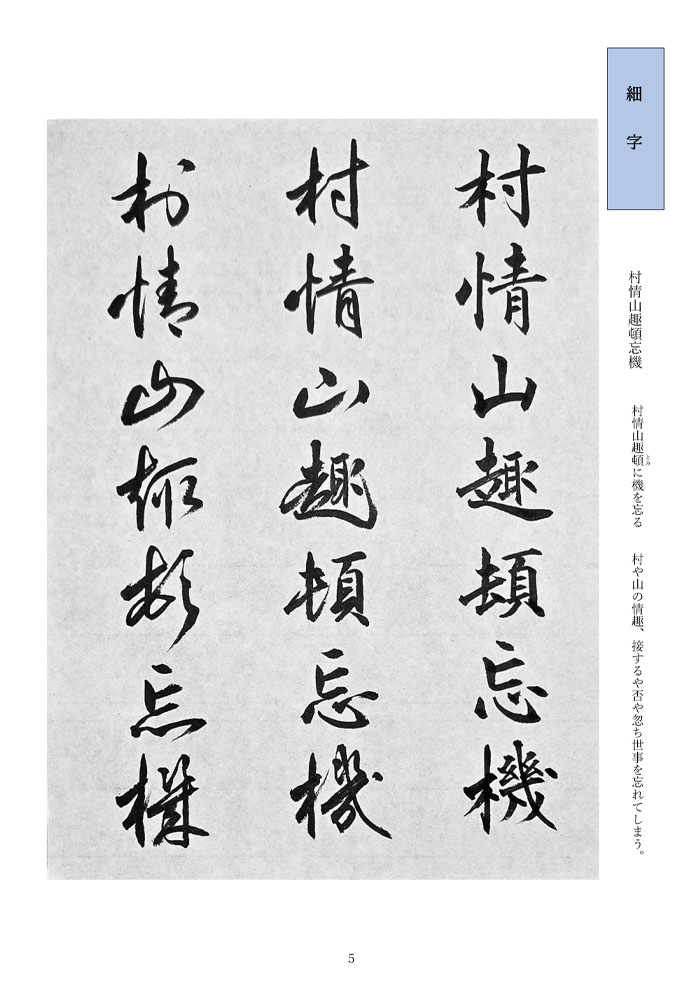 細字
村情山趣頓忘機　村情山趣頓に機を忘る　村や山の情趣、接するや否や忽ち世事を忘れてしまう。
とみ
村情山趣頓忘機
村情山趣頓忘機
村情山趣頓忘機
5